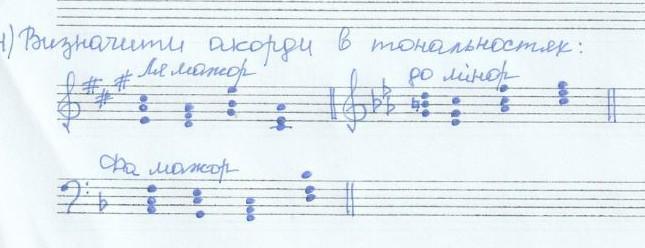 4) Визначити акорди в тональностях:
Ля мажор
до мінор
Фа мажор